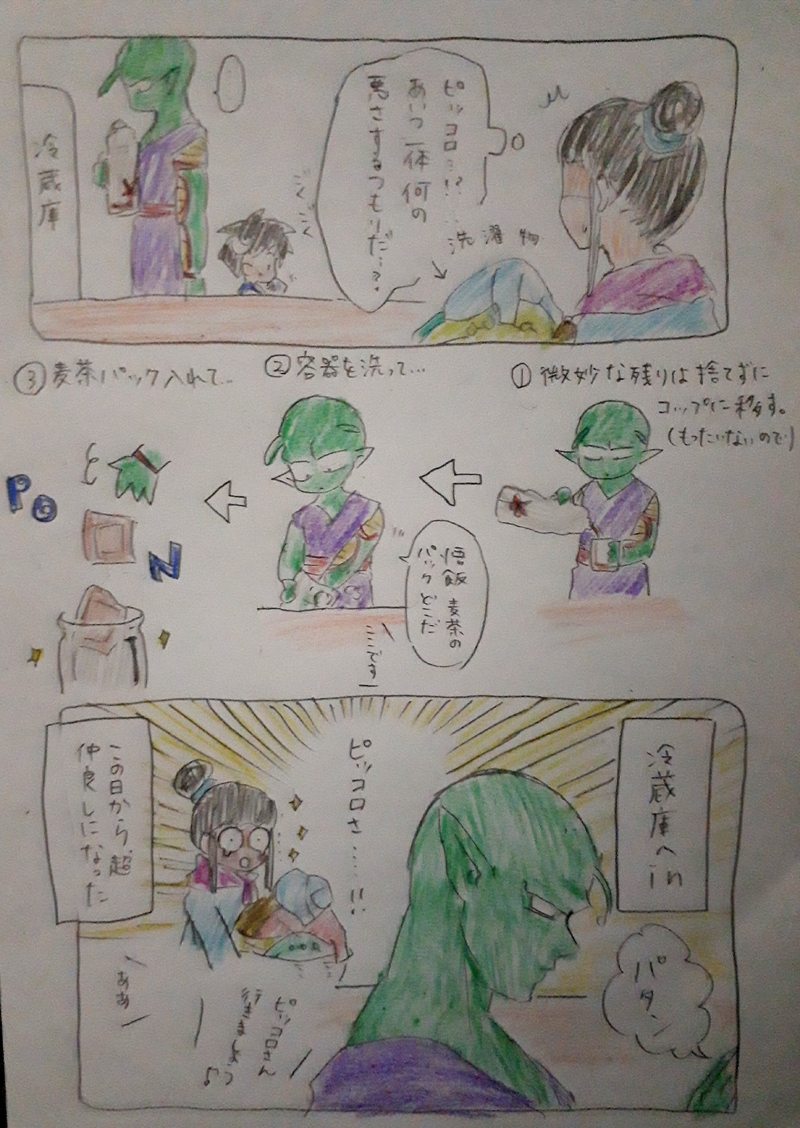 ピッコロ…!?
あいつ一体何の
悪さするつもりだ…?
洗濯物
ごくごく
冷蔵庫
①微妙な残りは捨てずに
コップに移す。
(もったいないので)
②容器を洗って…
悟飯 麦茶の
パックどこだ
ここです
③麦茶パック入れて…
PON
冷蔵庫へin
パタン
ピッコロさ……!!
この日から、超
仲良しになった
ピッコロさん
行きましょう♪
ああ